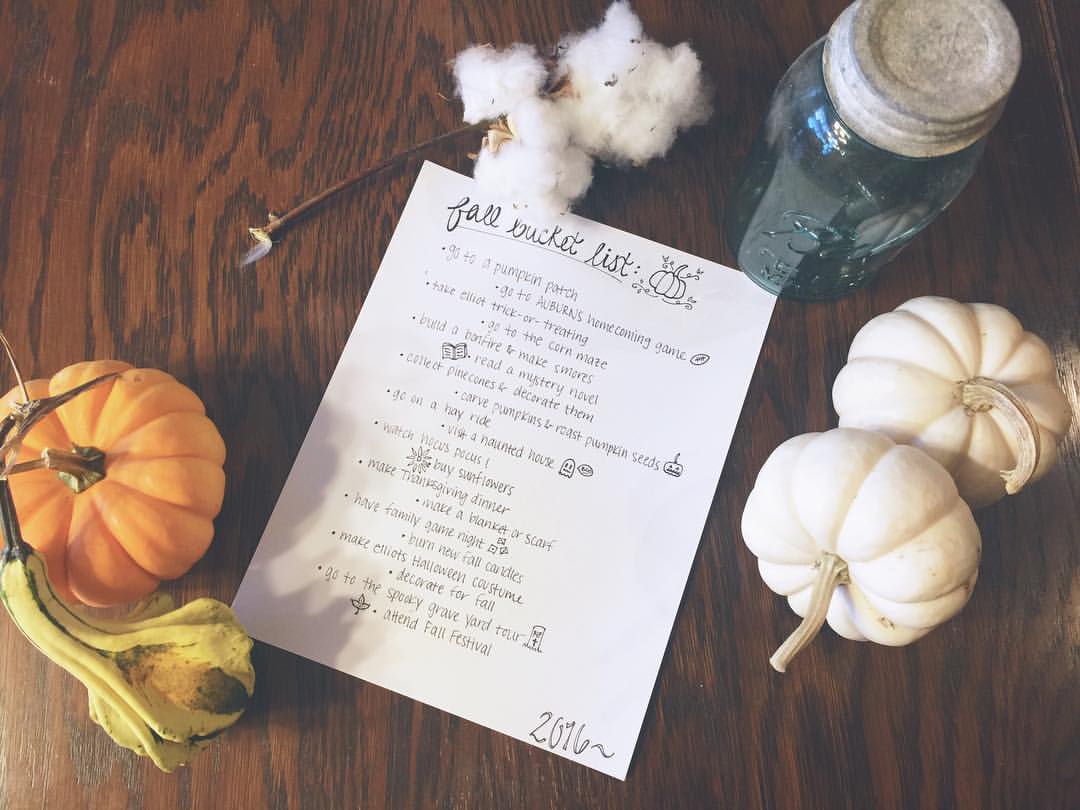 fall bucket list:
• go to a pumpkin patch
• go to AUBURNS homecoming game
• take elliot trick-or-treating
• go to the corn maze
• build a bonfire & make smores
• read a mystery novel
• collect pinecones & decorate them
• carve pumpkins & roast pumpkin seeds
• go on a hay ride
• visit a haunted house
• watch hocus pocus!
buy sunflowers
• make Thanksgiving dinner
• make a blanket or scarf
• have family game night
• burn new fall candles
• make elliots Halloween coustume
• decorate for fall
• go to the spooky grave yard tour
• attend Fall Festival
2016~